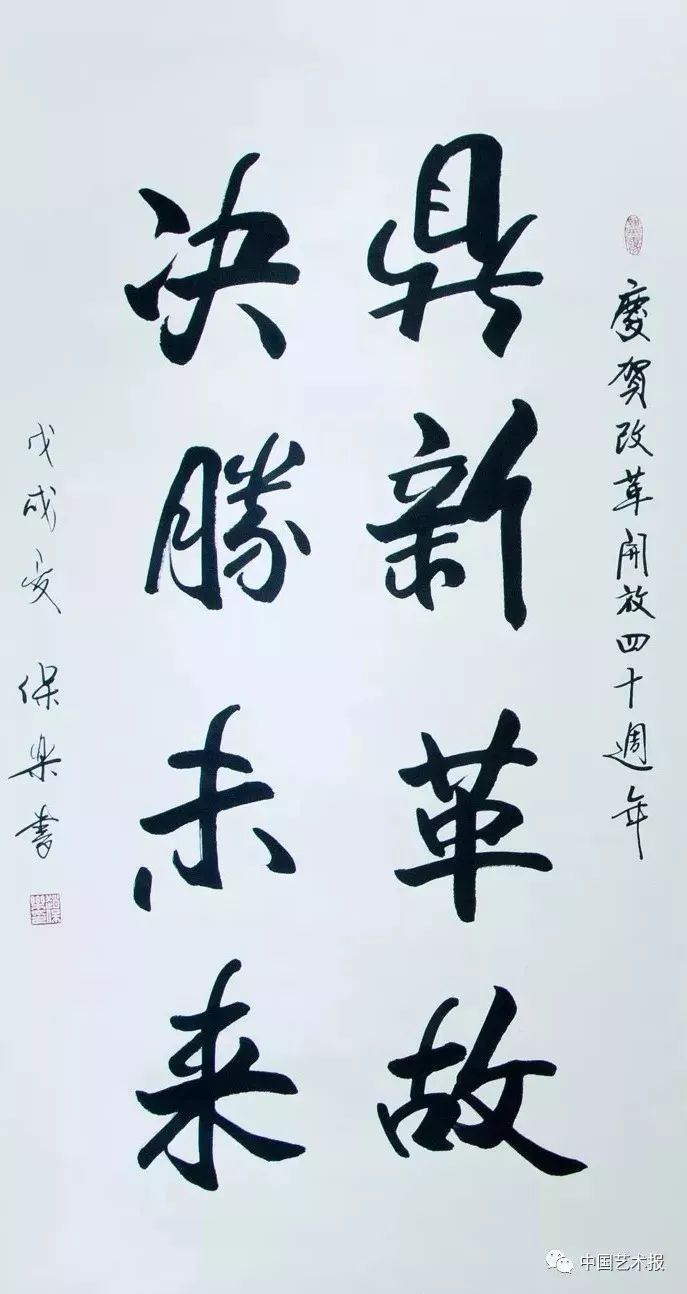 慶贺改革開放四十週年
鼎新革故
决勝未来
戊戌夏 保樂書
中国艺术报